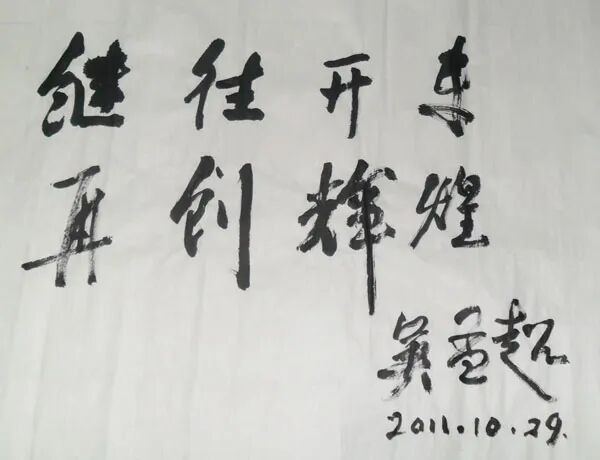 继往开来
再创辉煌
吴孟超
2011.10.29.